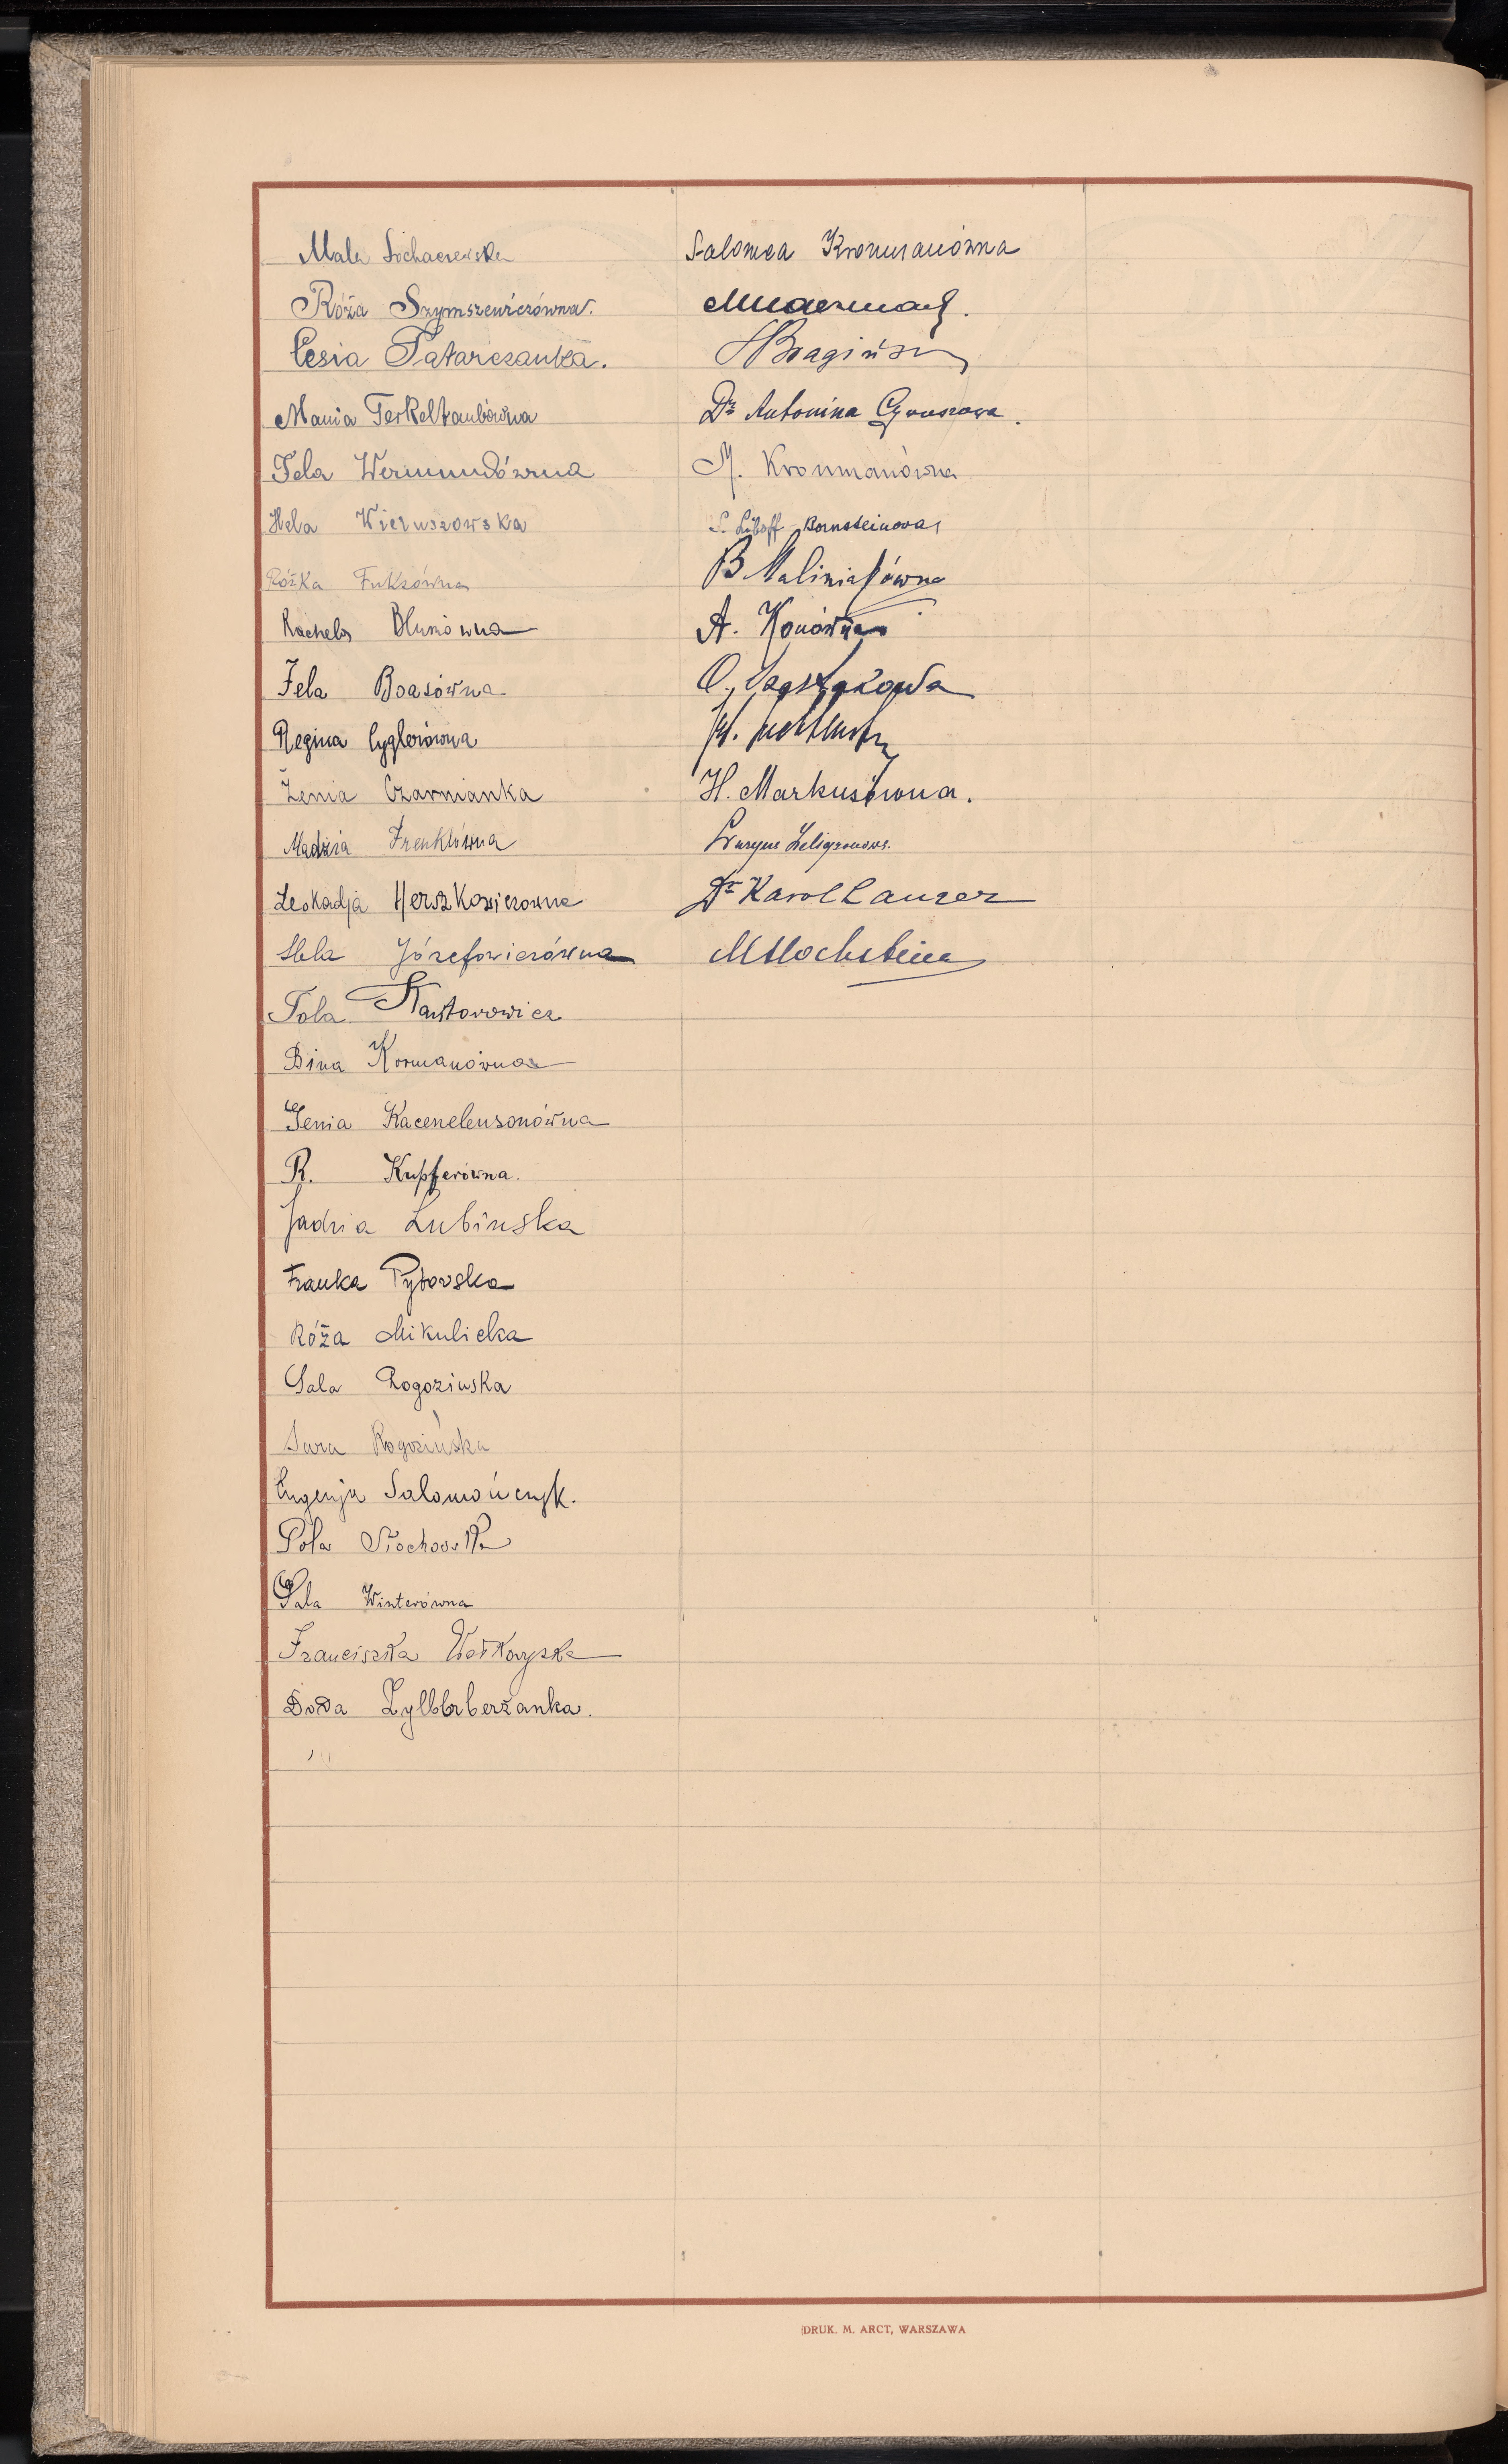 Mala Sochaczewska
Róża Szymszewiczówna.
Cesia Tatarczanka.
Mania Terkeltaubówna
Fela Wermundówna
Hela Wieruszowska
Róźka Fuksówna
Rachela Blumówna
Fela Boasówna
Regina Cyglerówna
Żenia Czarnianka
Madzia Frenklówna
Leokadja Herszkowiczowna
Hela Józefowiczówna
Tola Kantorowicz
Bina Kormanówna
Genia Kacenelensonówna
R. Kupferówna.
Jadzia Lubinska
Franka Pytowska
Róża Mikulicka
Sala Rogozinska
Sara Rogozińska
Eugenja Salomończyk.
Pola Stochowska
Sala Winterówna
Franciszka Wołkowyska
Doda Zylbberberżanka.
Salomea Kronmanówna
H Bragińs
Dr Antonina
M. Kronmanówna
S. Liboff-Bornsteinowa
B Maliniakówna
A. Konówna
O.
M.
H. Markusówna.
Zeligsonowa.
Dr Karol Lauzer
M Hochstein
DRUK. M. ARCT, WARSZAWA